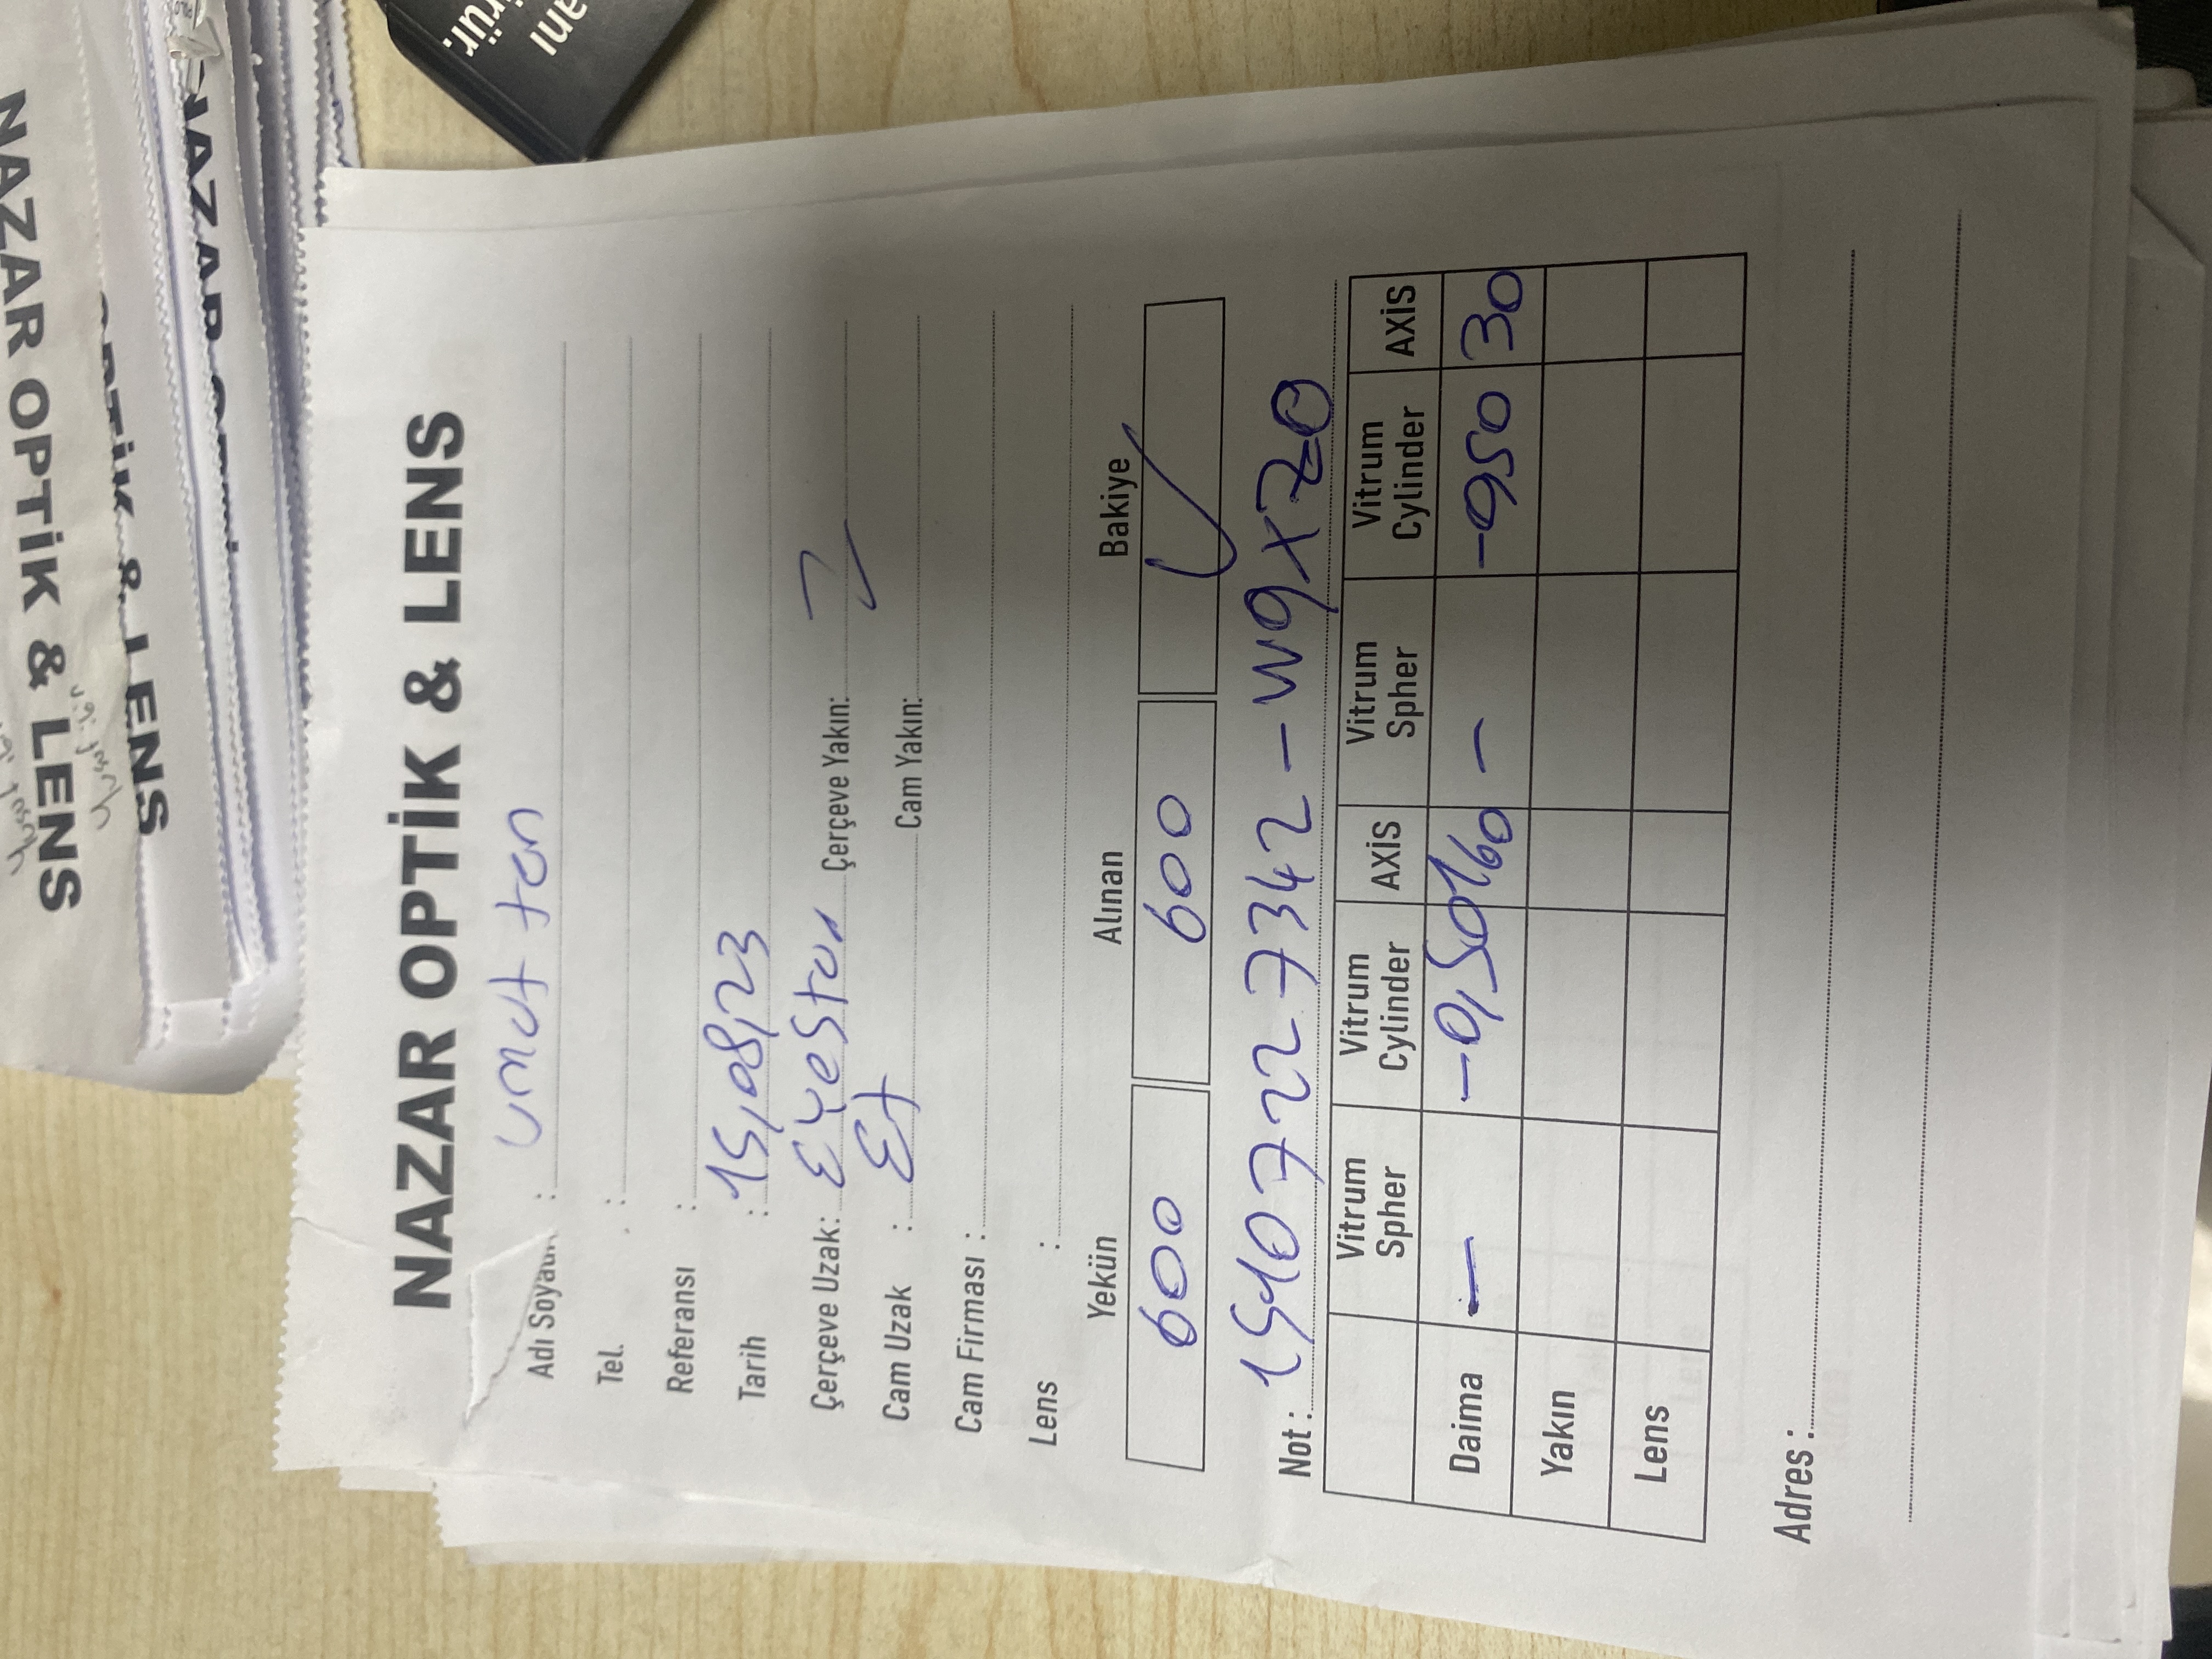 Yusuf ibi
NAZAR OPTİK & LENS
Yusuf ibin
OPTİK & LENS
NAZAR
NAZAR OPTİK & LENS
Adı Soyadı : umut tan
Tel. :
Referansı :
Tarih : 15,08,23
Çerçeve Uzak: Eyestar Çerçeve Yakın:
Cam Uzak : Et Cam Yakın:
Cam Firması :
Lens :
Yekün Alınan Bakiye
600 600 ✓
Not : 15107227342 - W9XZ0
Vitrum Spher Vitrum Cylinder AXİS Vitrum Spher Vitrum Cylinder AXİS
Daima — -0,50 160 — -0,50 30
Yakın
Lens
Adres :